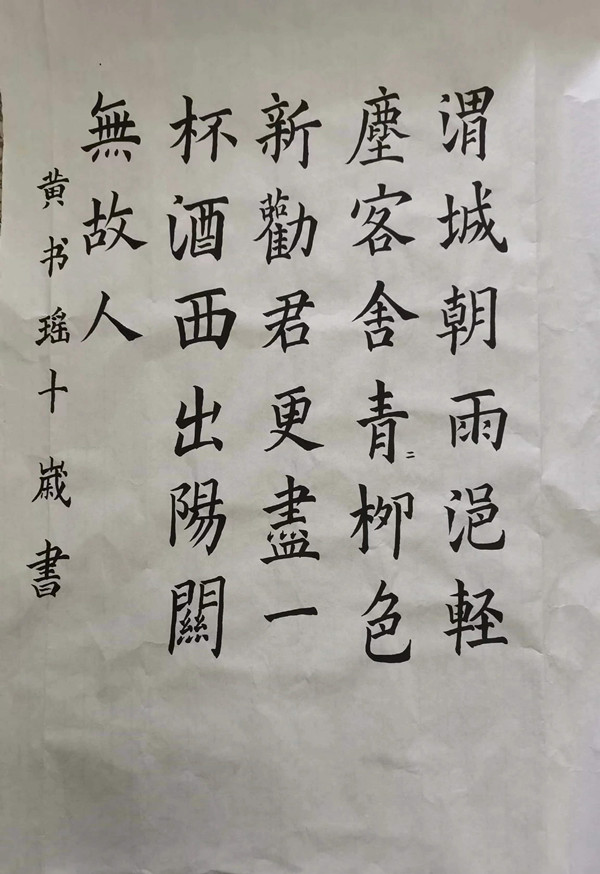 渭城朝雨浥軽
塵客舍青〻栁色
新勸君更盡一
杯酒西出陽關
無故人
黄书瑶十歳書